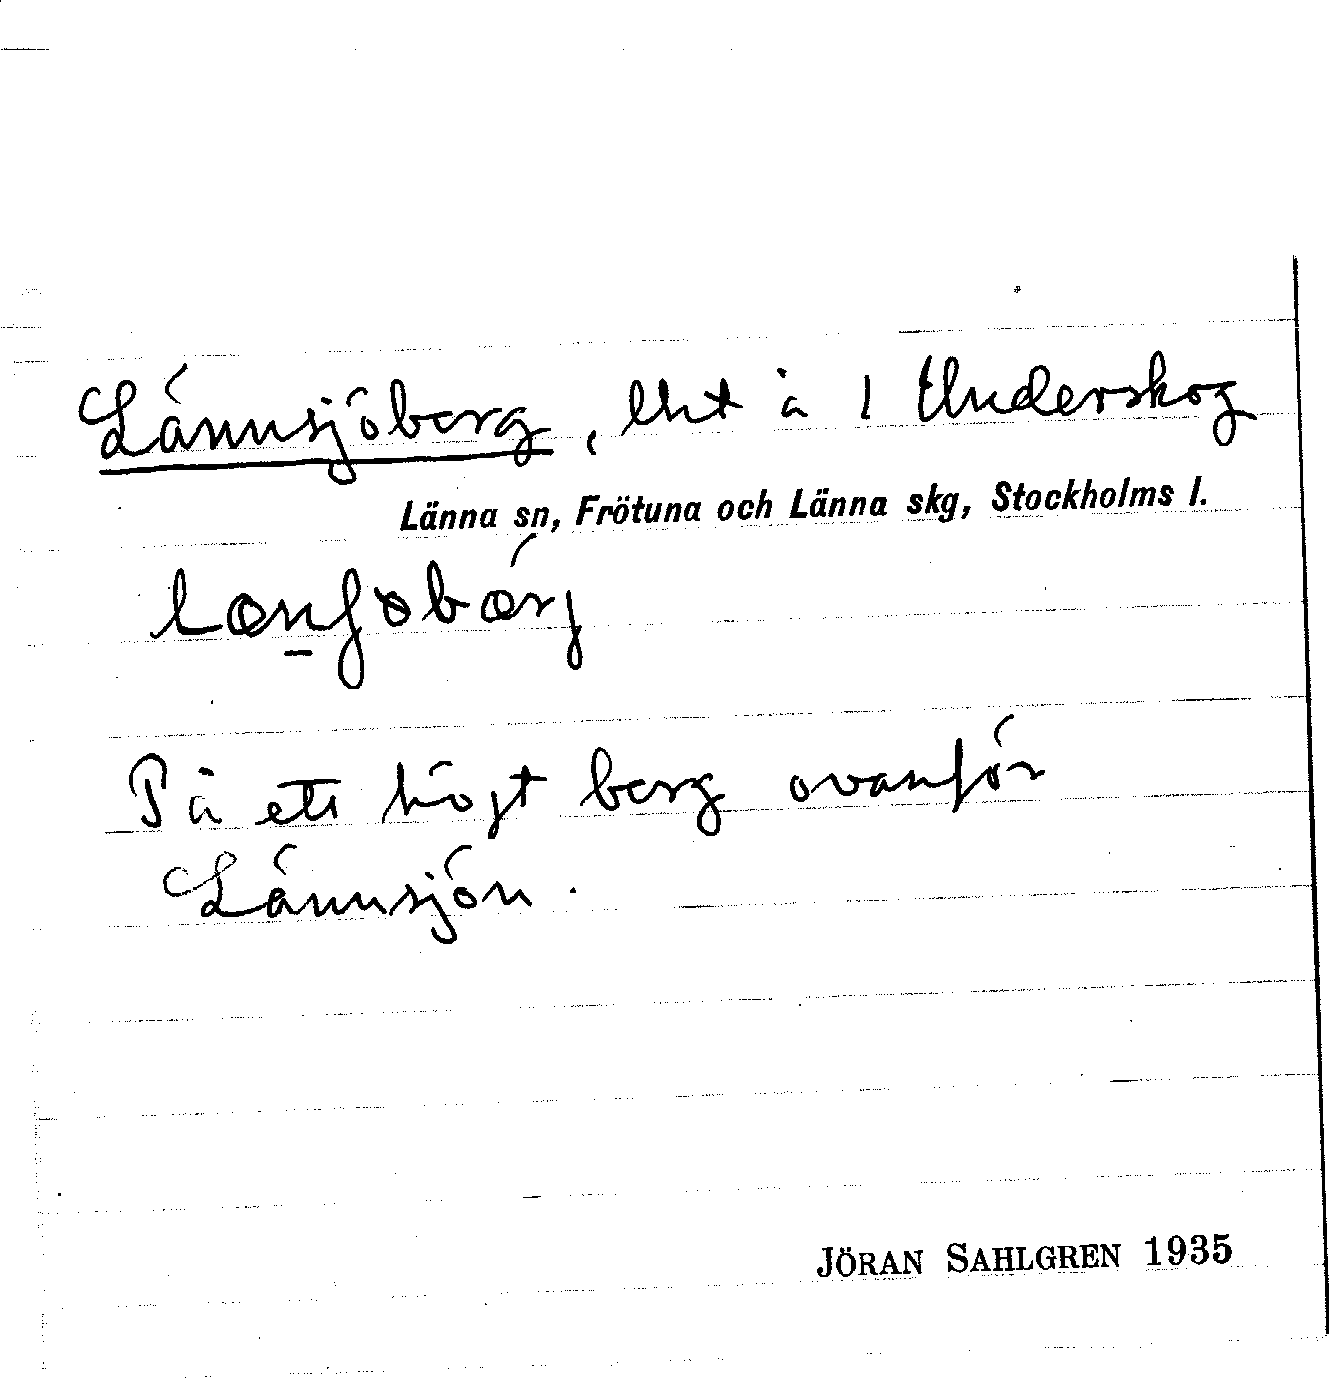 Lännsjöberg, lht å 1 Underskog
Länna sn, Frötuna och Länna skg, Stockholms l.
På ett högt berg ovanför
Lännsjön.
JÖRAN SAHLGREN 1935